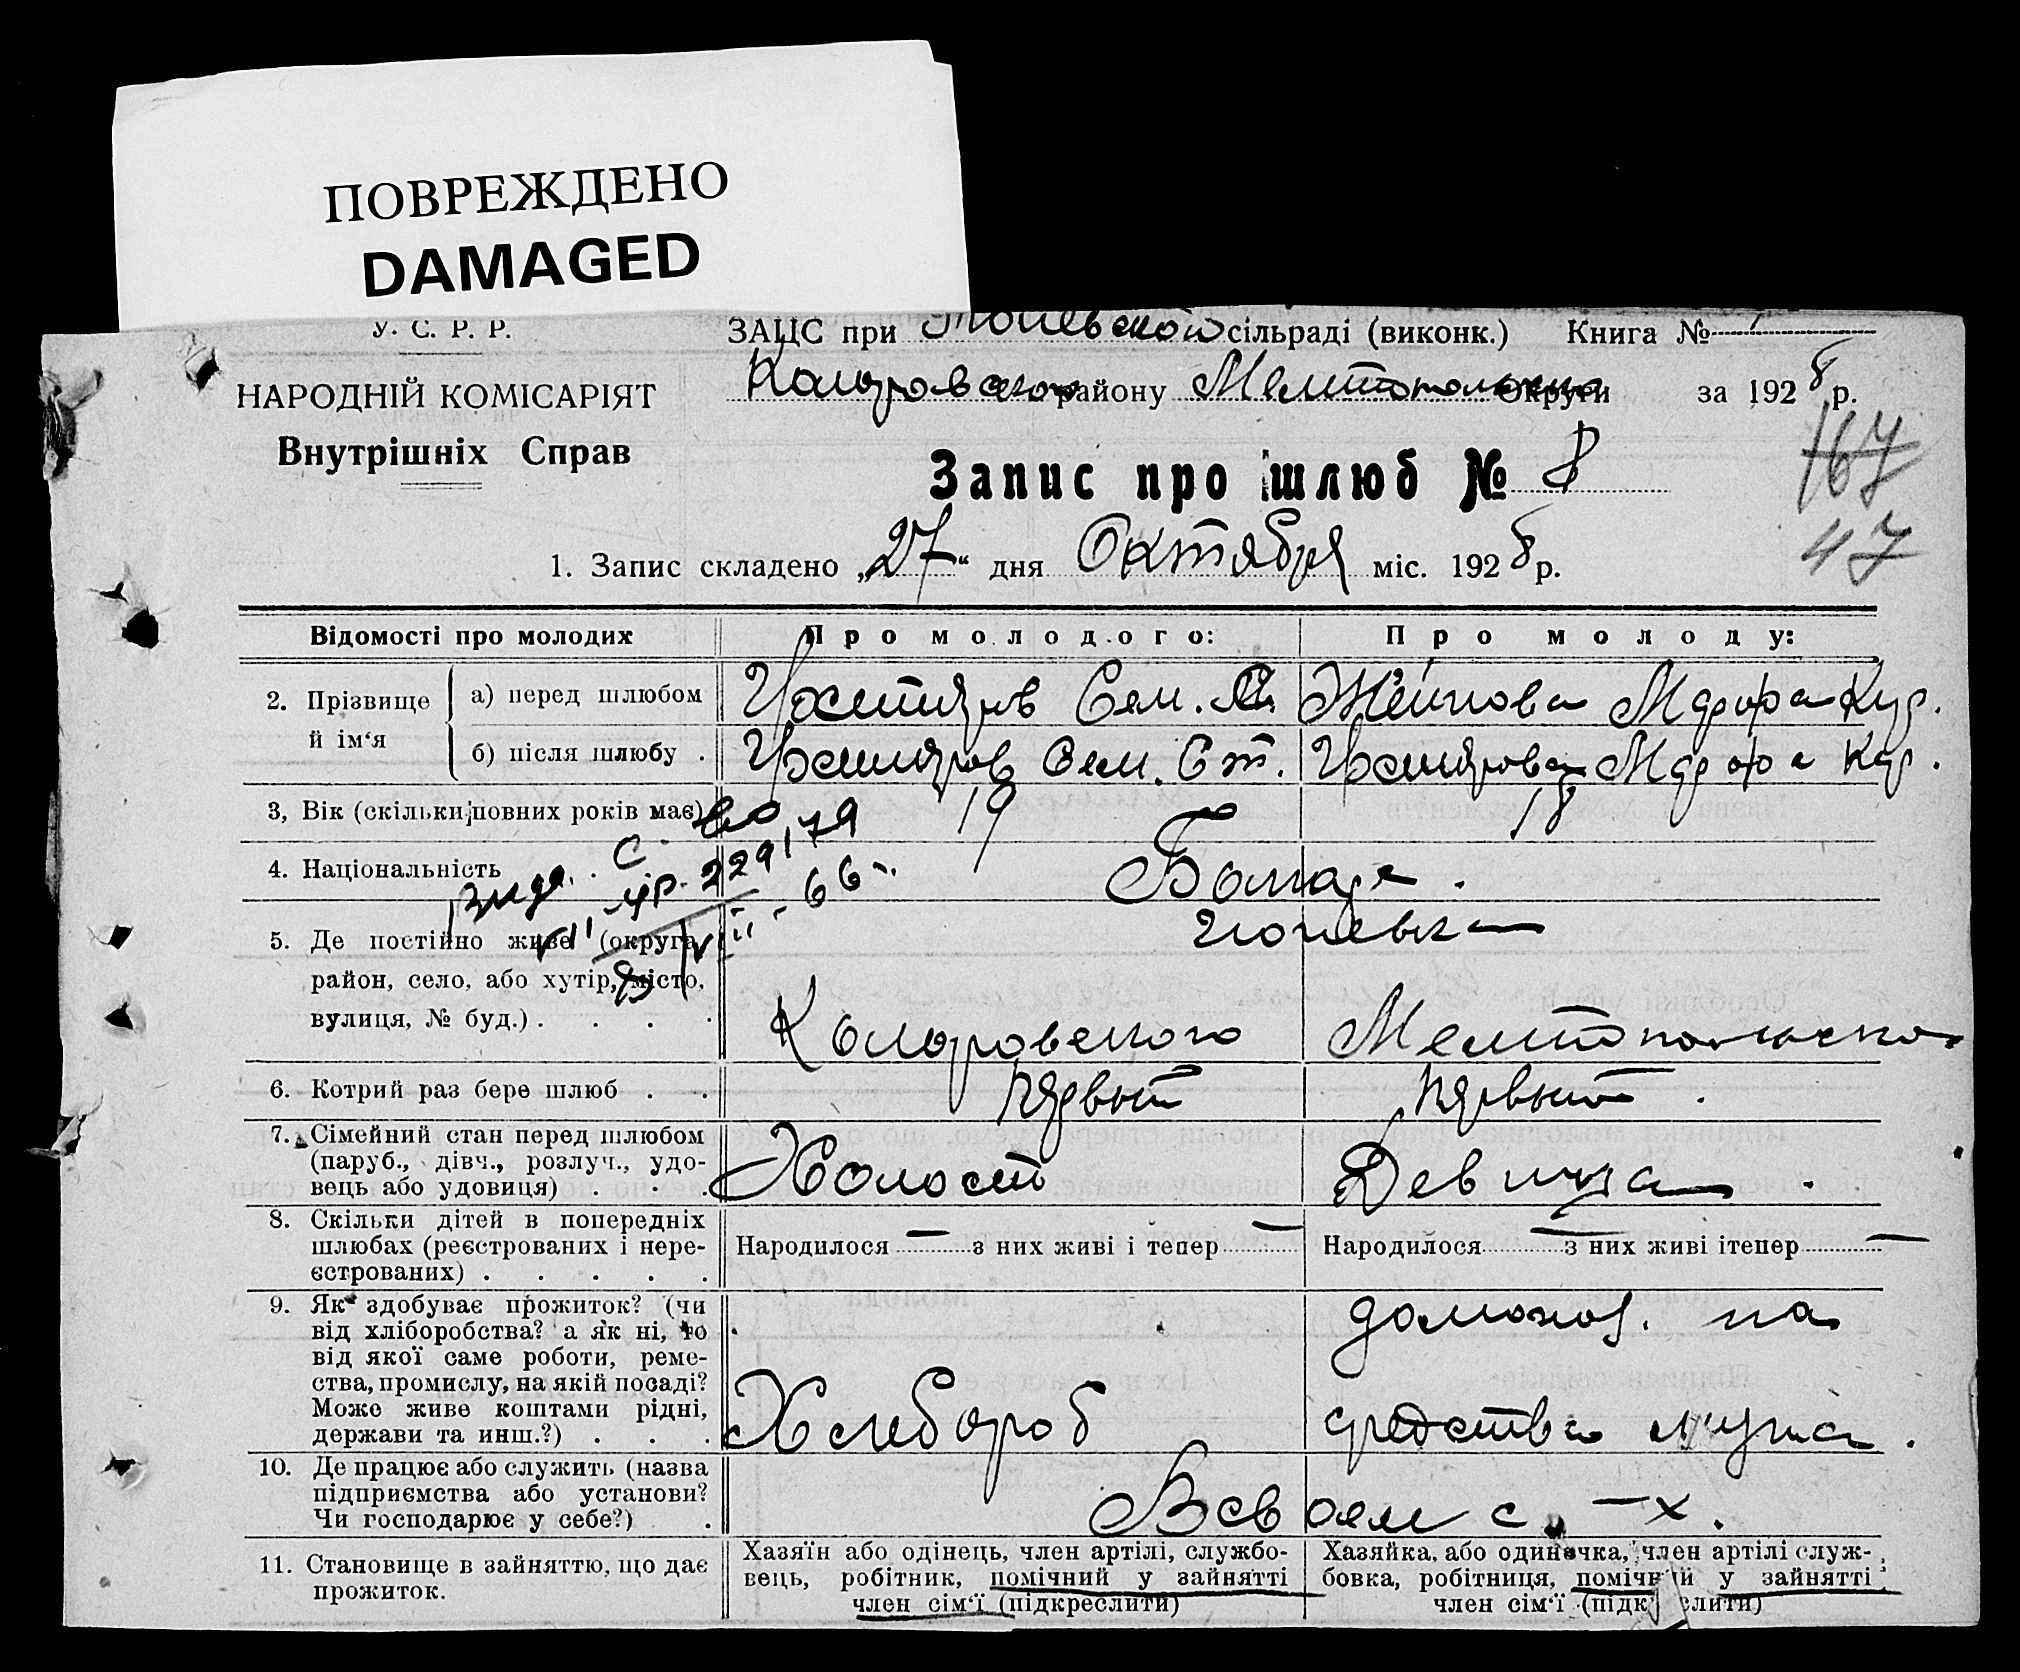 ПОВРЕЖДЕНО
DAMAGED
У. С. Р. Р.
ЗАЦС при сільраді (виконк.) Книга №
НАРОДНІЙ КОМІСАРІЯТ
Коларовского району Мелитопольской Округи за 1928 р.
Внутрішніх Справ
Запис про шлюб № 8
167
1. Запис складено „27“ дня Октября міс. 1928 р.
47
Відомості про молодих
Про молодого:
Про молоду:
2. Прізвище й ім‘я
а) перед шлюбом
Сем.
б) після шлюбу .
Сем. Ст.
3, Вік (скільки повних років має)
19
18
4. Національність
Болгаре .
5. Де постійно живе (округа,
район, село, або хутір, місто,
вулиця, № буд.) . . . .
Коларовского
Мелитопольско
6. Котрий раз бере шлюб . .
Первый
Первый .
7. Сімейний стан перед шлюбом
(паруб., дівч., розлуч., удо-
вець або удовиця) . . .
Холост
Девица .
8. Скільки дітей в попередніх
шлюбах (реєстрованих і нере-
єстрованих) . . . . .
Народилося — з них живі і тепер —
Народилося — з них живі ітепер —
9. Як здобуває прожиток? (чи
від хліборобства? а як ні, то
від якої саме роботи, реме-
ства, промислу, на якій посаді?
Може живе коштами рідні,
держави та инш.?) . . .
Хлебороб
домохоз. на
средства мужа .
10. Де працює або служить (назва
підприємства або установи?
Чи господарює у себе?) .
В своем с. - х.
11. Становище в зайняттю, що дає
прожиток.
Хазяїн або одінець, член артілі, службо-
вець, робітник, помічний у зайнятті
член сім‘ї (підкреслити)
Хазяйка, або одиночка, член артілі служ-
бовка, робітниця, помічний у зайнятті
член сім‘ї (підкреслити)